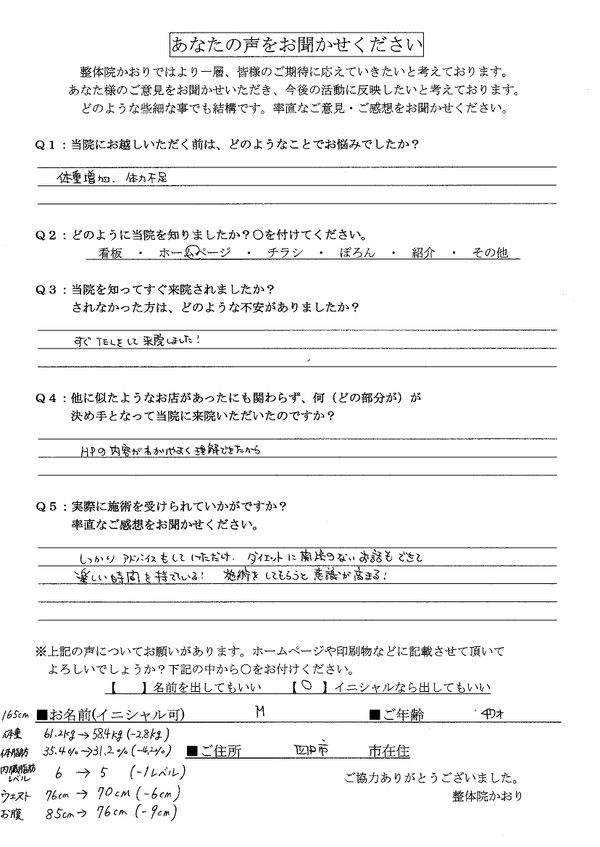 あなたの声をお聞かせください
整体院かおりではより一層、皆様のご期待に応えていきたいと考えております。
あなた様のご意見をお聞かせいただき、今後の活動に反映したいと考えております。
どのような些細な事でも結構です。率直なご意見・ご感想をお聞かせください。
Q1:当院にお越しいただく前は、どのようなことでお悩みでしたか?
体重増加、体力不足
Q2:どのように当院を知りましたか?〇を付けてください。
看板 ・ ホームページ ・ チラシ ・ ぽろん ・ 紹介 ・ その他
Q3:当院を知ってすぐ来院されましたか?
されなかった方は、どのような不安がありましたか?
すぐTELをして来院しました!
Q4:他に似たようなお店があったにも関わらず、何(どの部分が)が
決め手となって当院に来院いただいたのですか?
HPの内容がわかりやすく理解できたから
Q5:実際に施術を受けられていかがですか?
率直なご感想をお聞かせください。
しっかりアドバイスもしていただけ、ダイエットに関係のないお話もできて
楽しい時間を持てている! 施術をしてもらうと意識が高まる!
※上記の声についてお願いがあります。ホームページや印刷物などに記載させて頂いて
よろしいでしょうか?下記の中から〇をお付けください。
【 】名前を出してもいい 【〇】イニシャルなら出してもいい
165cm ■お名前(イニシャル可) M ■ご年齢 才
体重 61.2kg→58.4kg(-2.8kg)
体脂肪 35.4%→31.2%(-4.2%) ■ご住所 市在住
内臓脂肪レベル 6 → 5 (-1レベル)
ご協力ありがとうございました。
ウエスト 76cm → 70cm (-6cm)
整体院かおり
お腹 85cm → 76cm (-9cm)